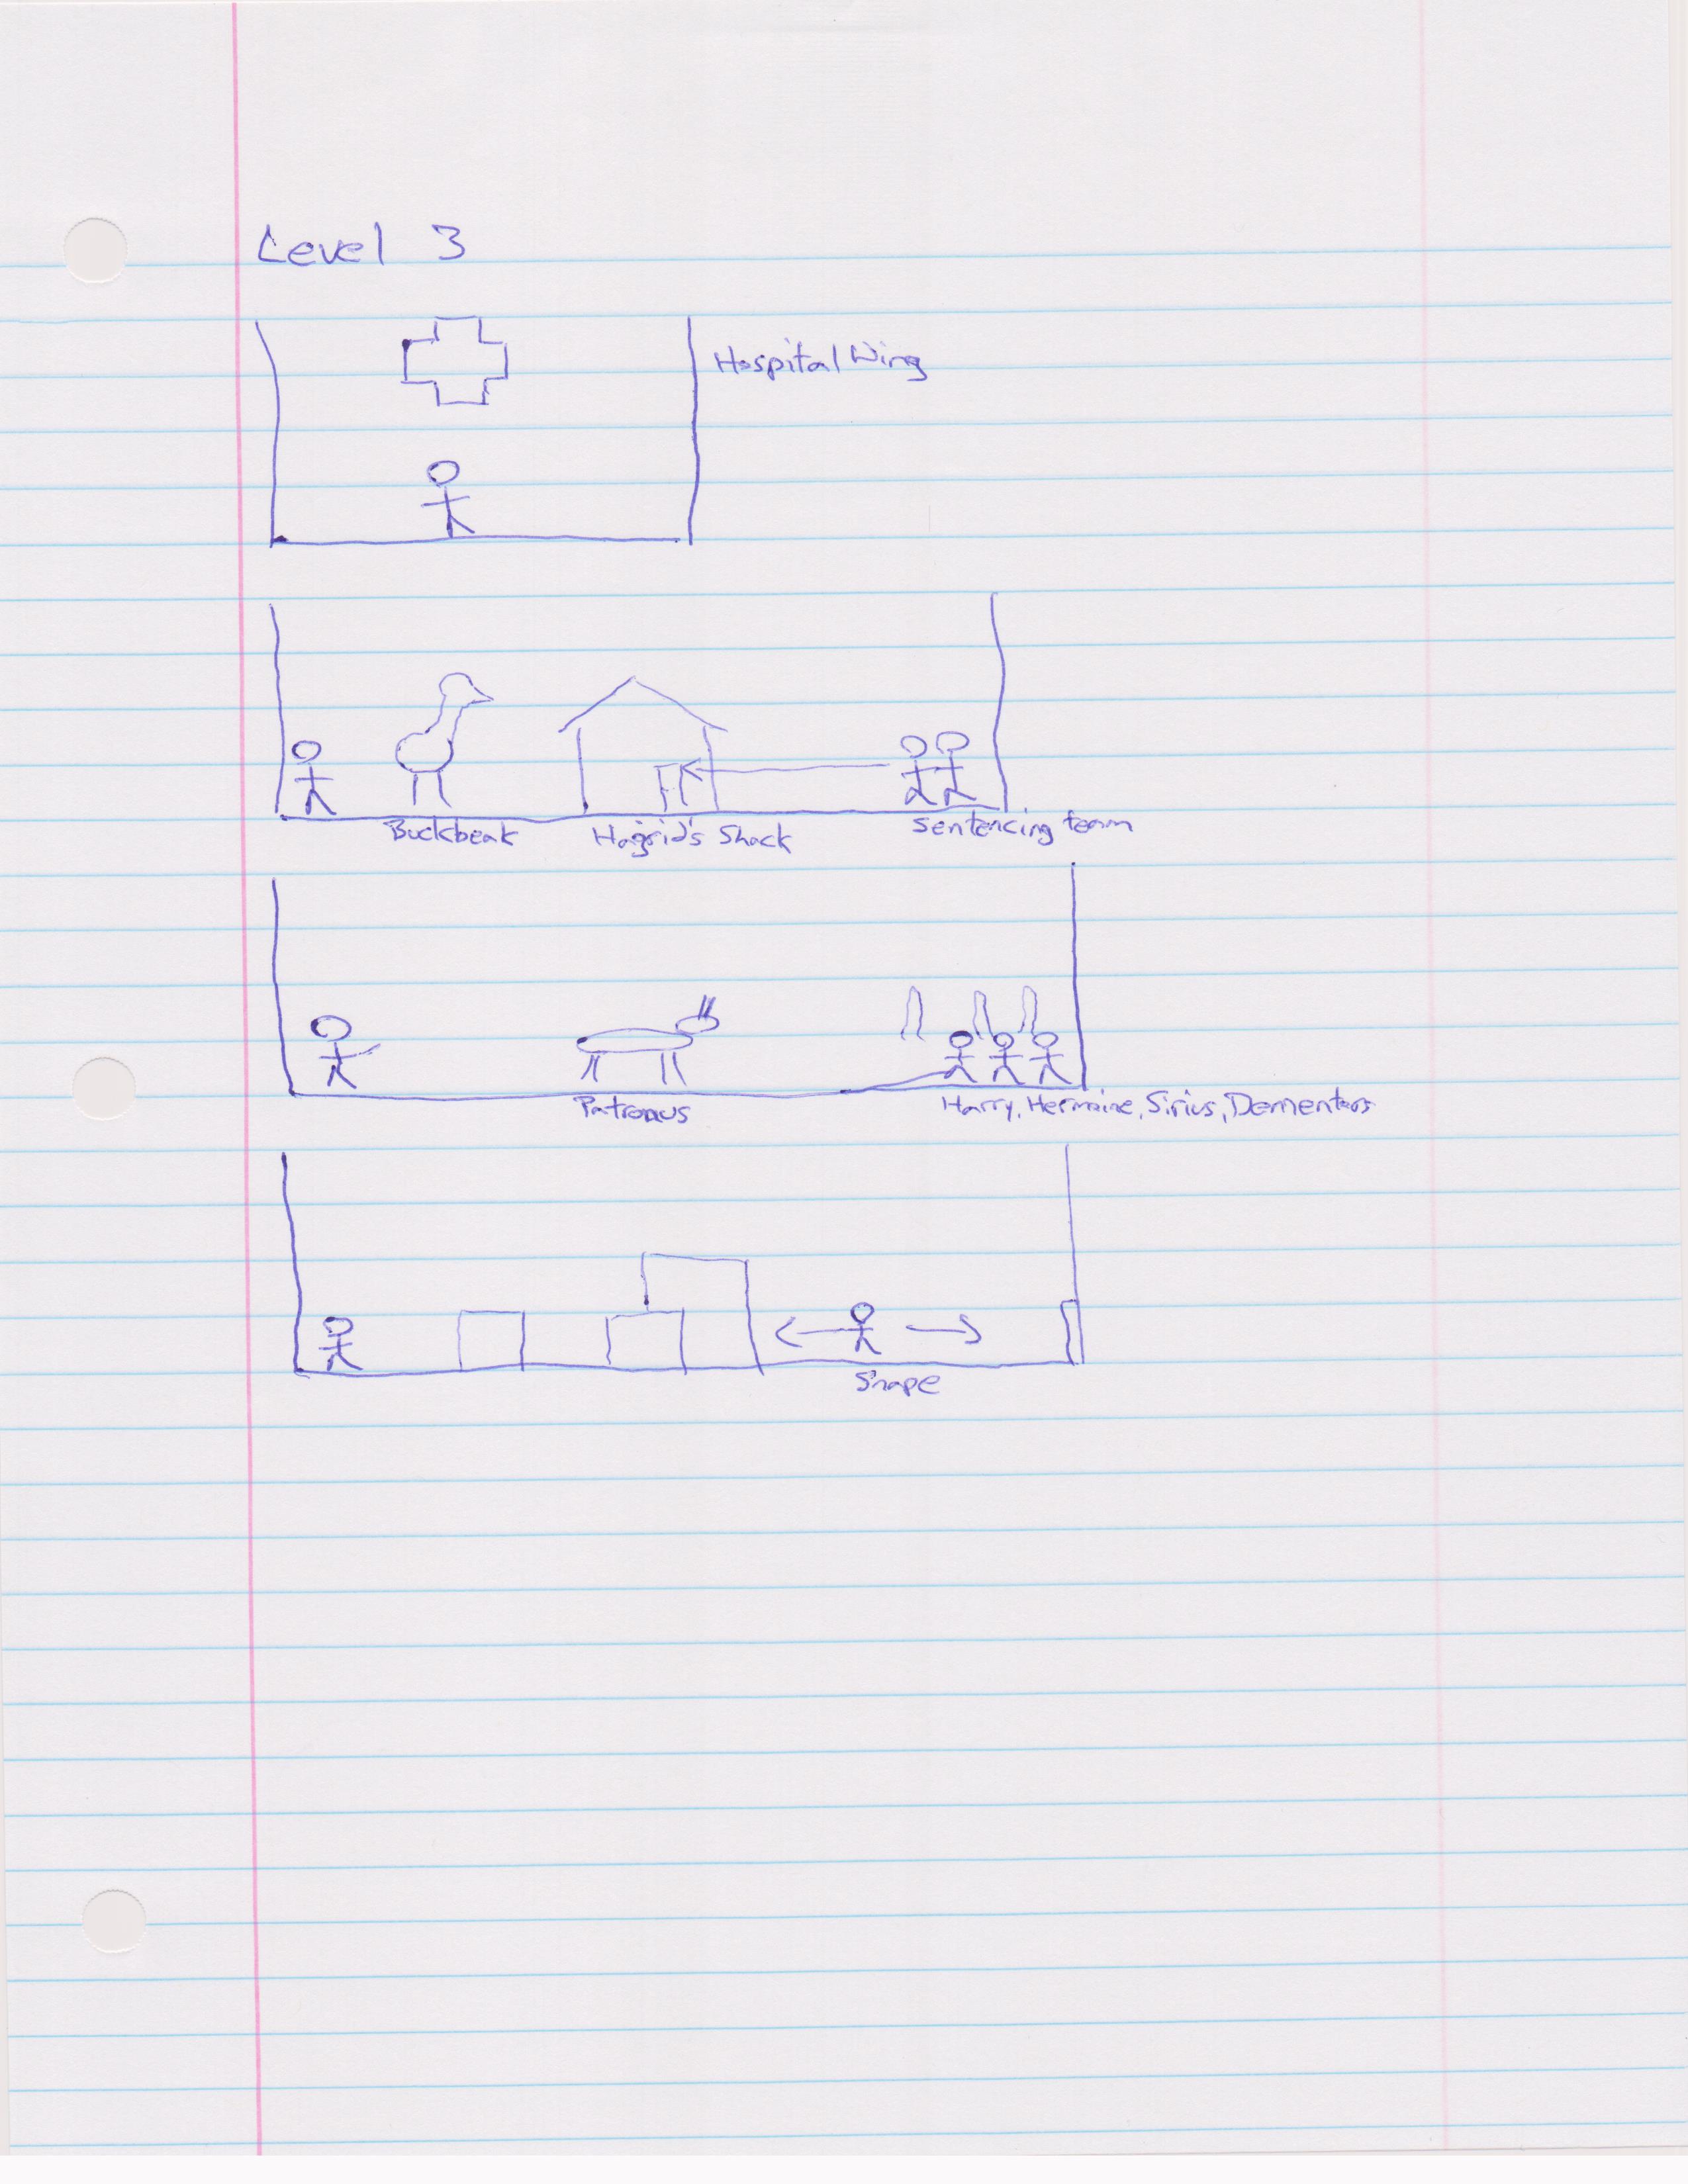 Level 3
Hospital Wing
Buckbeak
Hagrid's Shack
Sentencing team
Patronus
Harry, Hermoine, Sirius, Dementors
Snape